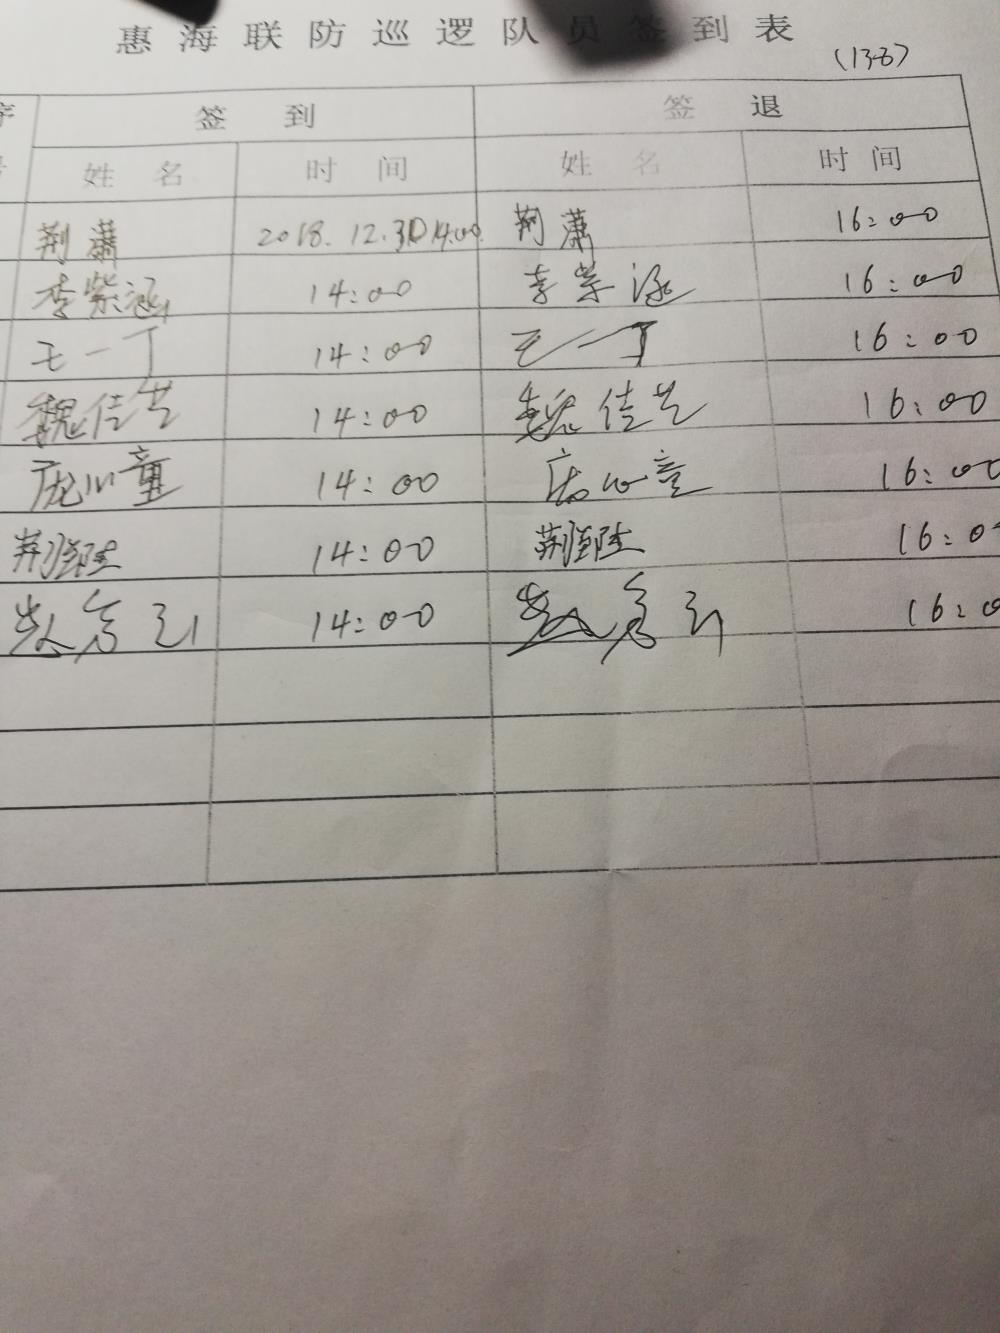 惠海联防巡逻队员签到表
(13-8)
序号 签到 签退
姓名 时间 姓名 时间
荆潇 2018.12.31日14:00 荆潇 16:00
李紫涵 14:00 李紫涵 16:00
王一丁 14:00 王一丁 16:00
魏佳艺 14:00 魏佳艺 16:00
庞心童 14:00 庞心童 16:00
14:00 16:0
14:00 16:0